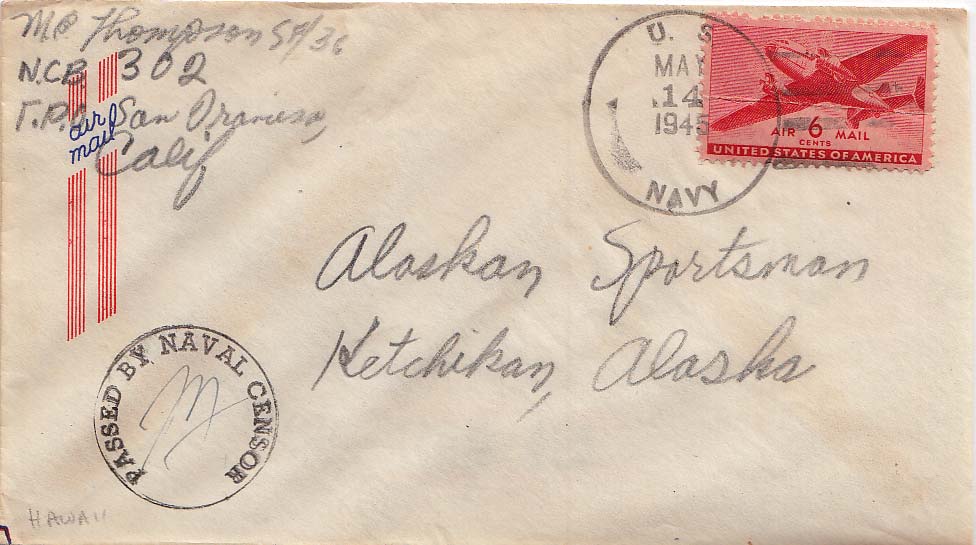 MC Thompson SF/3c
NCB 302
F.P.O. San Francisco,
Calif
air
mail
U. S.
MAY
14
1945
NAVY
AIR 6 MAIL
CENTS
UNITED STATES OF AMERICA
Alaskan Sportsman
Ketchikan, Alaska
PASSED BY NAVAL CENSOR
HAWAII